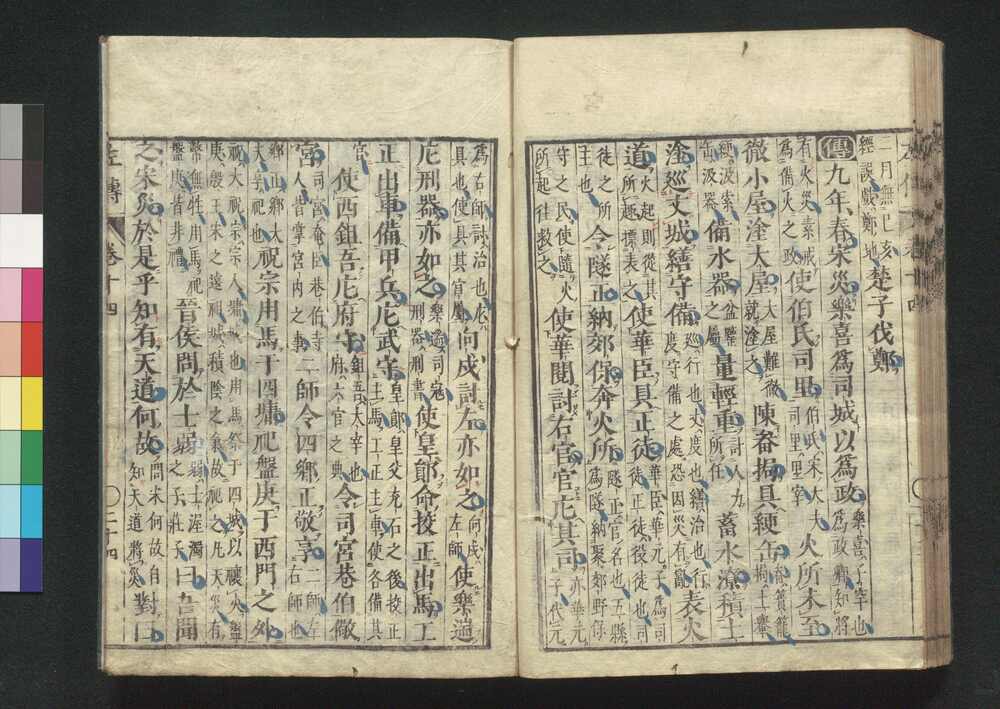 二月無己亥經誤戲鄭地楚子伐鄭
傳九年春宋災樂喜爲司城以爲政樂喜子罕也爲政卿知將
有火災素戒爲備火之政使伯氏司里伯氏宋大夫司里里宰火所未至
徹小屋塗大屋大屋難徹就塗之陳畚挶具綆缶畚簣籠挶土轝
綆汲索缶汲器備水器盆鑒之屬量輕重計人力所任蓄水潦積土
塗巡丈城繕守備巡行也丈度也繕治也行度守備之處恐因災有亂表火
道火起則從其所趣摽表之使華臣具正徒華臣華元子爲司徒正徒役徒也司
徒之所主也令隧正納郊保奔火所隧正官名也五縣爲隧納聚郊野保
守之民使隨火所起往救之使華閱討右官官庀其司亦華元子代元
爲右師討治也庀具也使具其官屬向戌討左亦如之向戌左師使樂遄
庀刑器亦如之樂遄司寇刑器刑書使皇鄖命挍正出馬工
正出車備甲兵庀武守皇鄖皇父充石之後挍正主馬工正主車使各備其
官使西鉏吾庀府守鉏吾大宰也府六官之典令司宮巷伯儆
宮司宮奄臣巷伯寺人皆掌宮内之事二師令四鄉正敬享二師左右師也
鄉正鄉大夫享祀也祝宗用馬于四墉祀盤庚于西門之外
祝大祝宗宗人墉城也用馬祭于四城以禳火盤庚殷王宋之遠祖城積陰之氣故祀之凡天災有
幣無牲用馬祀盤庚皆非禮晉侯問於士弱弱士渥濁之子莊子曰吾聞
之宋災於是乎知有天道何故問宋何故自知天道將災對曰
左傳 卷十四 二十四